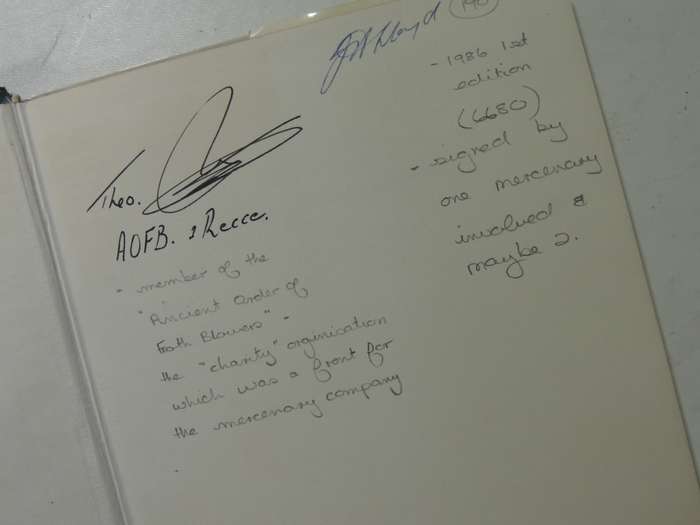 Lloyd
190
- 1986 1st
edition
(6680)
- signed by
one mercenary
involved &
maybe 2.
Theo.
AOFB. 1 Recce.
- member of the
"Ancient Order of
Froth Blowers" -
the "charity" orginisation
which was a front for
the mercenary company